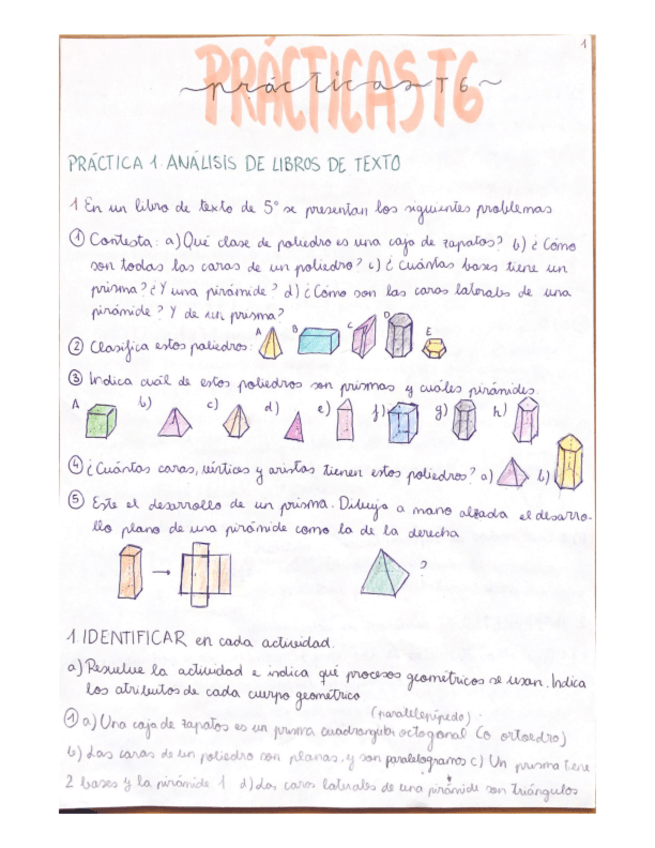 1
PRÁCTICAS T6
prácticas T6
PRÁCTICA 1. ANÁLISIS DE LIBROS DE TEXTO
1 En un libro de texto de 5º se presentan los siguientes problemas
① Contesta: a) Qué clase de poliedro es una caja de zapatos? b) ¿Cómo
son todas las caras de un poliedro? c) ¿Cuántas bases tiene un
prisma? ¿Y una pirámide? d) ¿Cómo son las caras laterales de una
pirámide? Y de un prisma?
② Clasifica estos poliedros: A B C D E
③ Indica cuál de estos poliedros son prismas y cuáles pirámides.
A b) c) d) e) f) g) h)
④ ¿Cuántas caras, vértices y aristas tienen estos poliedros? a) b)
⑤ Este el desarrollo de un prisma. Dibuja a mano alzada el desarro-
llo plano de una pirámide como la de la derecha
?
1. IDENTIFICAR en cada actividad.
a) Resuelve la actividad e indica qué procesos geométricos se usan. Indica
los atributos de cada cuerpo geométrico
(paralelepípedo).
① a) Una caja de zapatos es un prisma cuadrangular octogonal (o ortoedro)
b) Las caras de un poliedro son planas, y son paralelogramos c) Un prisma tiene
2 bases y la pirámide 1 d) Las caras laterales de una pirámide son triángulos